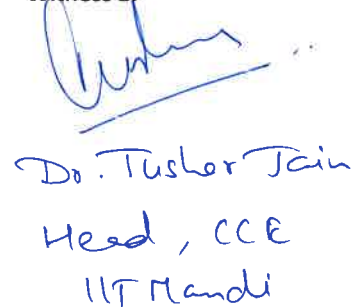 Dr. Tushar Jain
Head, CCE
IIT Mandi